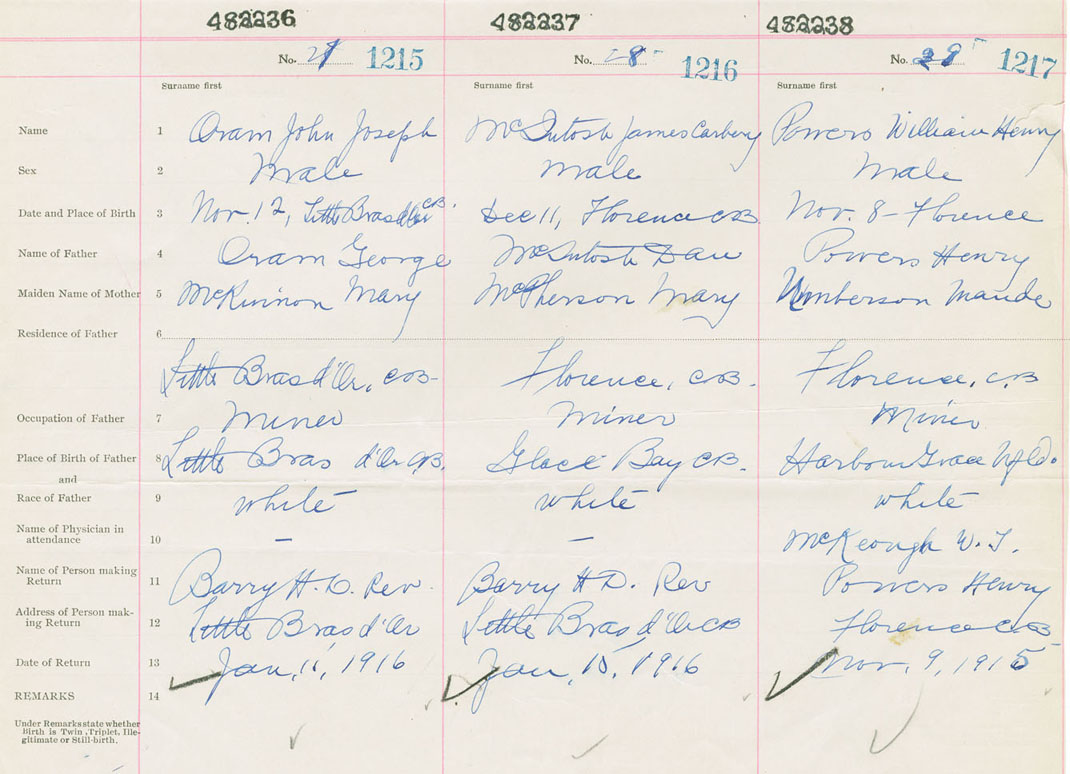 482236 482237 482238
No. 1215 No. 28 1216 No. 1217
Surname first Surname first Surname first
Name 1 Oram John Joseph McIntosh James Carbery Powers William Henry
Sex 2 Male Male Male
Date and Place of Birth 3 Nov. 12, Little Bras d'Or C.B. Dec 11, Florence C.B. Nov. 8 - Florence
Name of Father 4 Oram George McIntosh Dan Powers Henry
Maiden Name of Mother 5 McKinnon Mary McPherson Mary Maude
Residence of Father 6
Little Bras d'Or, C.B. Florence, C.B. Florence, C.B
Occupation of Father 7 Miner Miner Miner
Place of Birth of Father 8 Little Bras d'Or C.B. Glace Bay C.B. Harbour Grace Nfld.
and
Race of Father 9 white white white
Name of Physician in
attendance 10 – – McKeough W. J.
Name of Person making
Return 11 Barry H. D. Rev. Barry H D. Rev Powers Henry
Address of Person mak-
ing Return 12 Little Bras d'Or Little Bras d'Or CB Florence C.B
Date of Return 13 Jan, 11, 1916 Jan, 15, 1916 Nov. 9, 1915
REMARKS 14
Under Remarks state whether
Birth is Twin, Triplet, Ille-
gitimate or Still-birth.